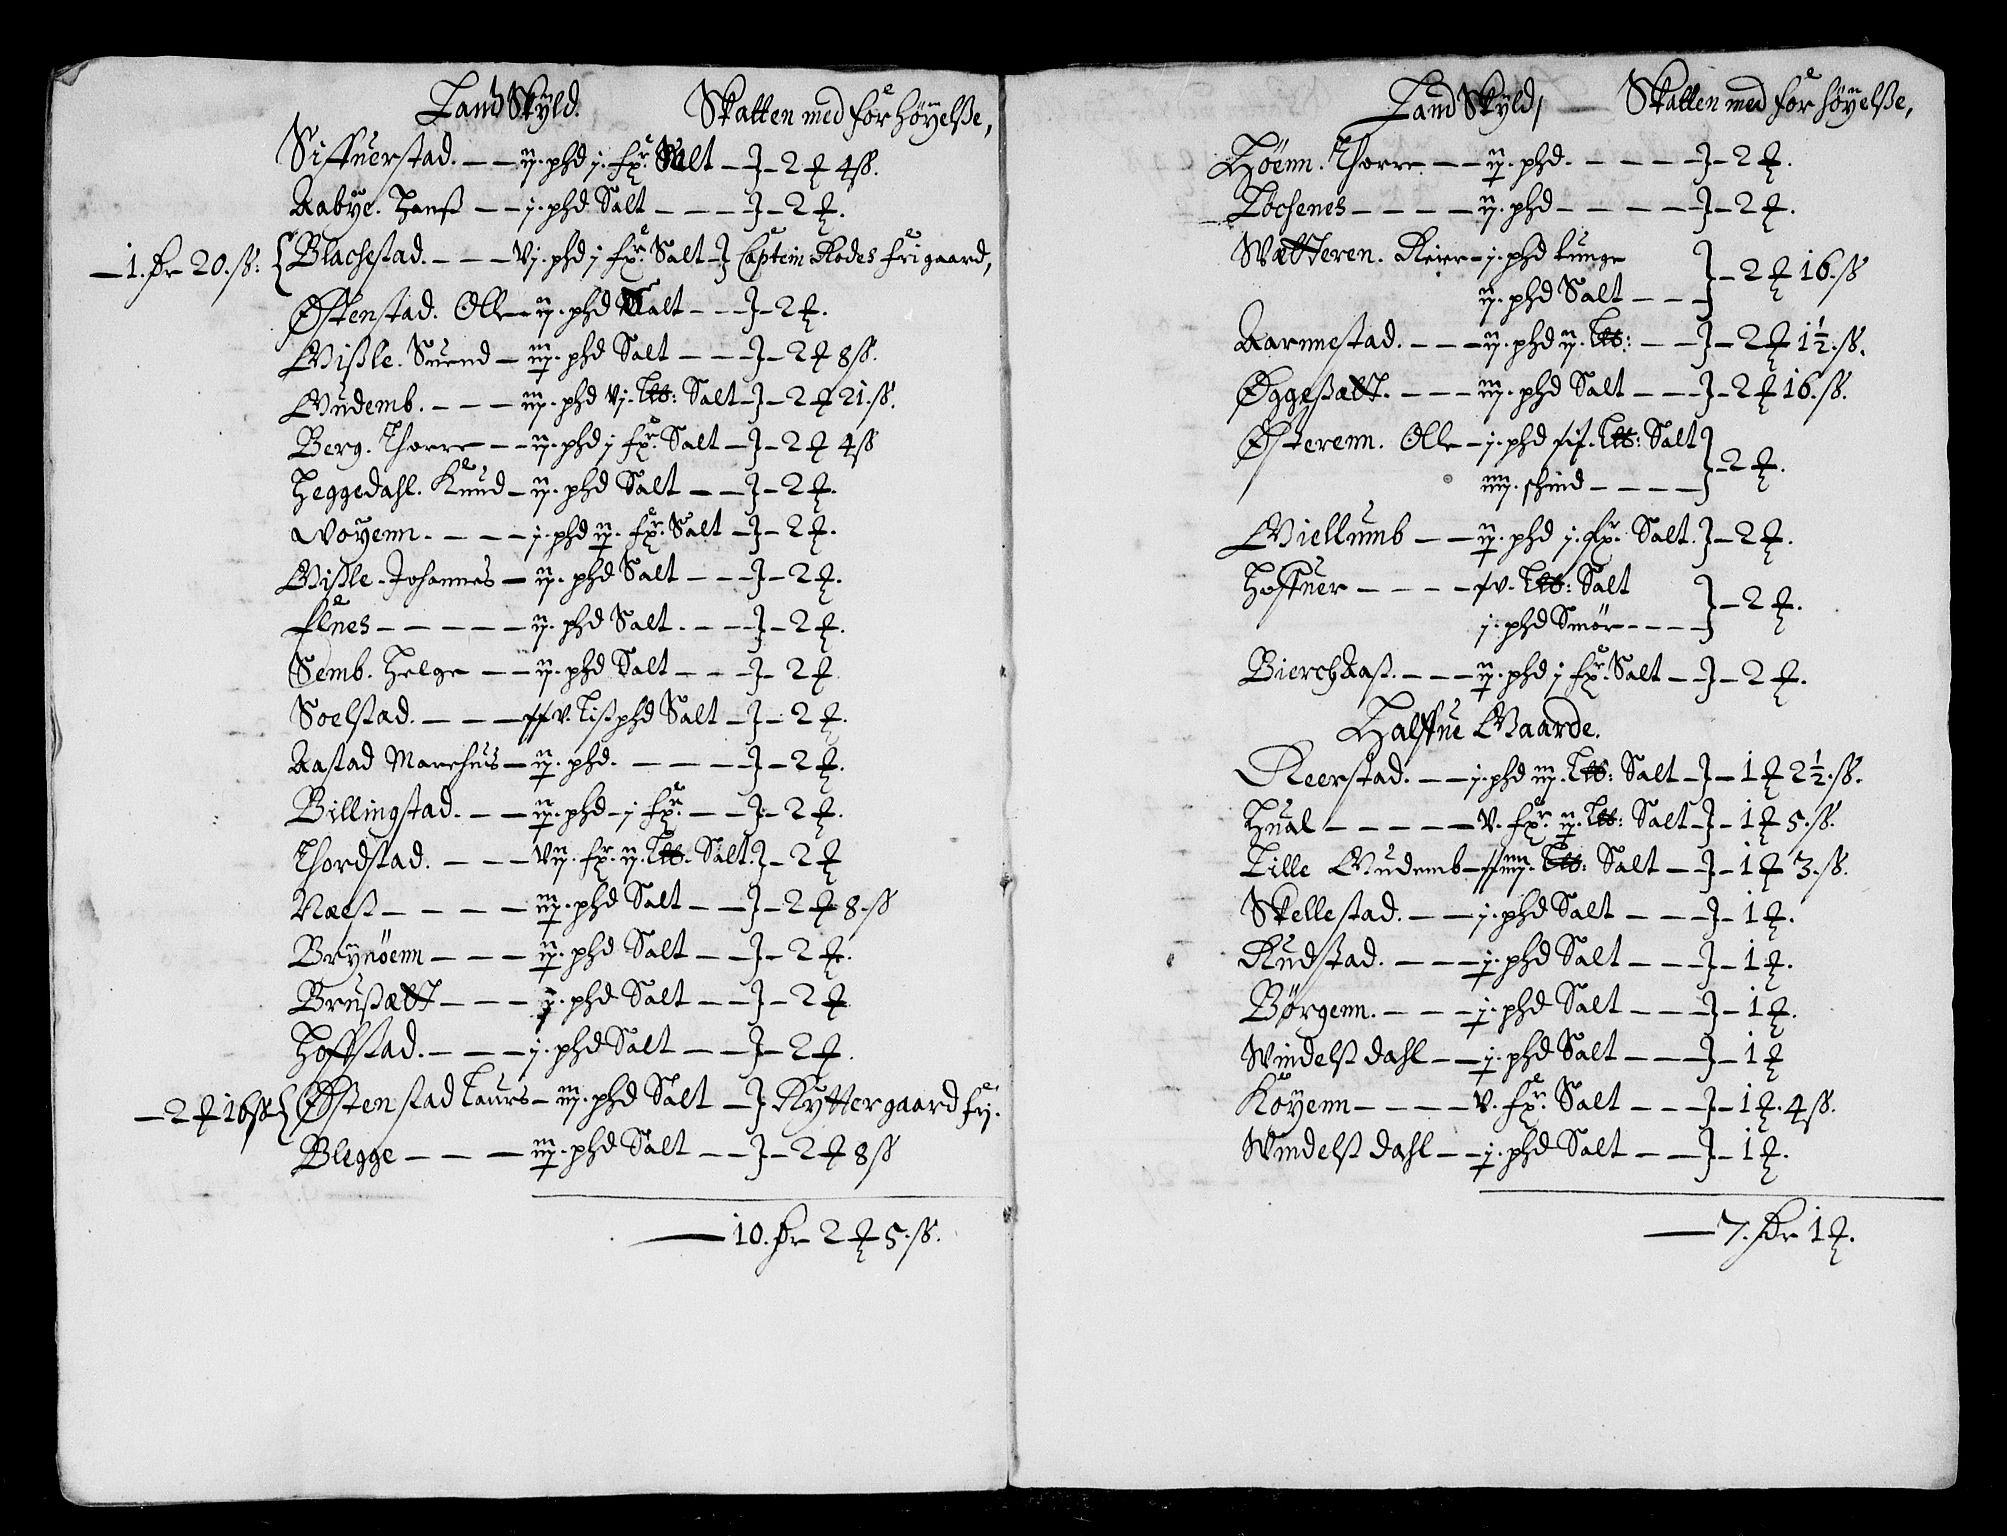 Land Skyld. Skatten med forhöyelße,
Siffuerstad. — ij. phd j. fr. Salt — 2 ƶ 4 ß.
Aabye. Hanß — j. phd. Salt — 2 ƶ.
— 1. Dr 20. ß: { Blachestad. — vj. phd j fr. Salt — Captein Rodes fri gaard,
Østenstad. Olle — ij. phd Salt — 2 ƶ.
Gißle. Suend — iij. phd Salt — 2 ƶ 8 ß.
Gudemb. — iij. phd vj. L℔: Salt — 2 ƶ 21. ß.
Berg. Thorre — ij. phd j fr. Salt — 2 ƶ 4 ß
Heggedahl. Knud — ij. phd Salt — 2 ƶ.
Woyenn. — j. phd ij. fr. Salt — 2 ƶ.
Gißle. Johannes — ij. phd Salt — 2 ƶ.
Elnes — ij. phd Salt. — 2 ƶ.
Semb. Helge — ij. phd Salt — 2 ƶ
Soelstad. — xxv. Lißphd Salt — 2 ƶ.
Aastad Marchus — ij. phd. — 2 ƶ.
Billingstad. — ij. phd j fr. — 2 ƶ.
Thordstad. — vij. fr. ij. L℔. Salt. — 2 ƶ
Næß — iij. phd Salt — 2 ƶ 8. ß
Brynöenn — ij. phd Salt — 2 ƶ.
Brußætt — j. phd Salt — 2 ƶ
Hoffstad. — j. phd Salt — 2 ƶ.
— 2 ƶ 16 ß { Østenstad Laurs — iij. phd Salt — Ryttergaard frj.
Blegge — iij. phd Salt — 2 ƶ 8 ß
— 10. Dr 2 ƶ 5. ß.
Land Skyld, Skatten med forhöyelße,
Höenn. Thorre — ij. phd. — 2 ƶ.
Löchenes — ij. phd — 2 ƶ.
Wætteren. Reier — j. phd tunge
ij. phd Salt — } 2 ƶ 16. ß
Aarnnestad. — ij. phd ij. L℔: — 2 ƶ 1½. ß.
Øggeßætt. — iij. phd Salt — 2 ƶ 16. ß.
Østerenn. Olle — j. phd xij. L℔: Salt
iiij. schind — } 2 ƶ.
Giellumb — ij. phd j. fr. Salt. — 2 ƶ.
Hoffuer — xv. L℔: Salt
j. phd Smör — } 2 ƶ.
BierchAaß. — ij. phd j fr. Salt — 2 ƶ.
Halffue Gaarde.
Reerstad. — j. phd iij. L℔: Salt — 1 ƶ 2½. ß.
Hual — v. fr. ij. L℔: Salt — 1 ƶ 5. ß.
Lille Gudemb — xxiiij. L℔: Salt — 1 ƶ 3. ß.
Skellestad. — j. phd Salt — 1 ƶ.
Rudstad. — j. phd Salt — 1 ƶ.
Börgenn. — j. phd Salt — 1 ƶ.
Windelß dahl — j. phd Salt — 1 ƶ
Köyenn — v. fr. Salt — 1 ƶ. 4 ß.
Windelß dahl — j. phd Salt — 1 ƶ.
— 7. Dr 1 ƶ.